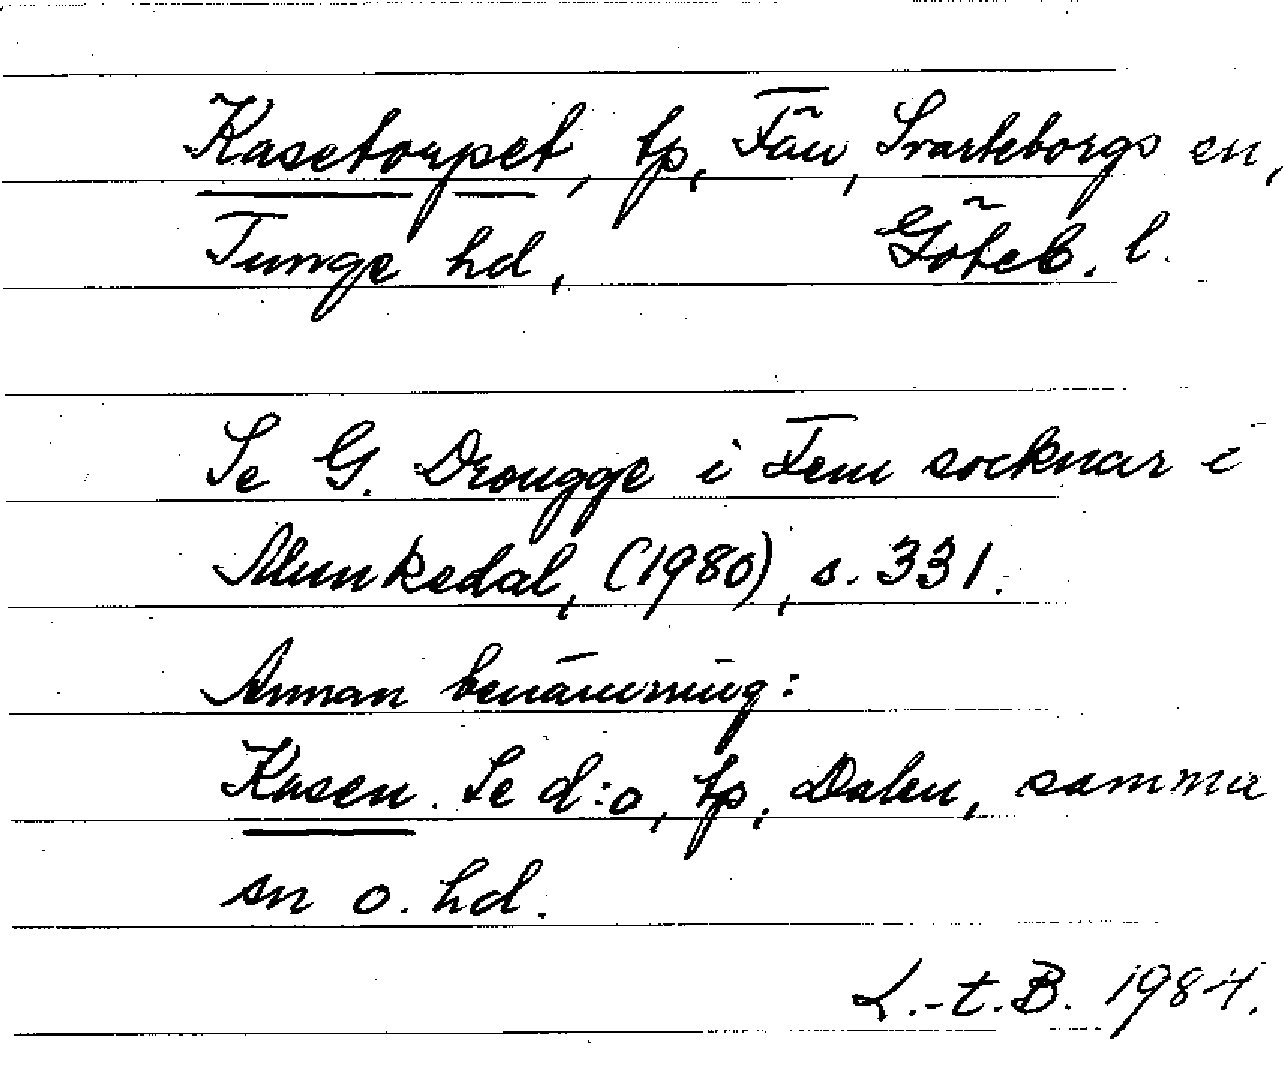 Kasetorpet, tp, Fån, Svarteborgs sn,
Tunge hd, Göteb. l.
Se G. Drougge i Fem socknar i
Munkedal, (1980), s. 331.
Annan benämning:
Kasen. Se d:o, tp, Dalen, samma
sn o. hd.
L.-t. B. 1984.